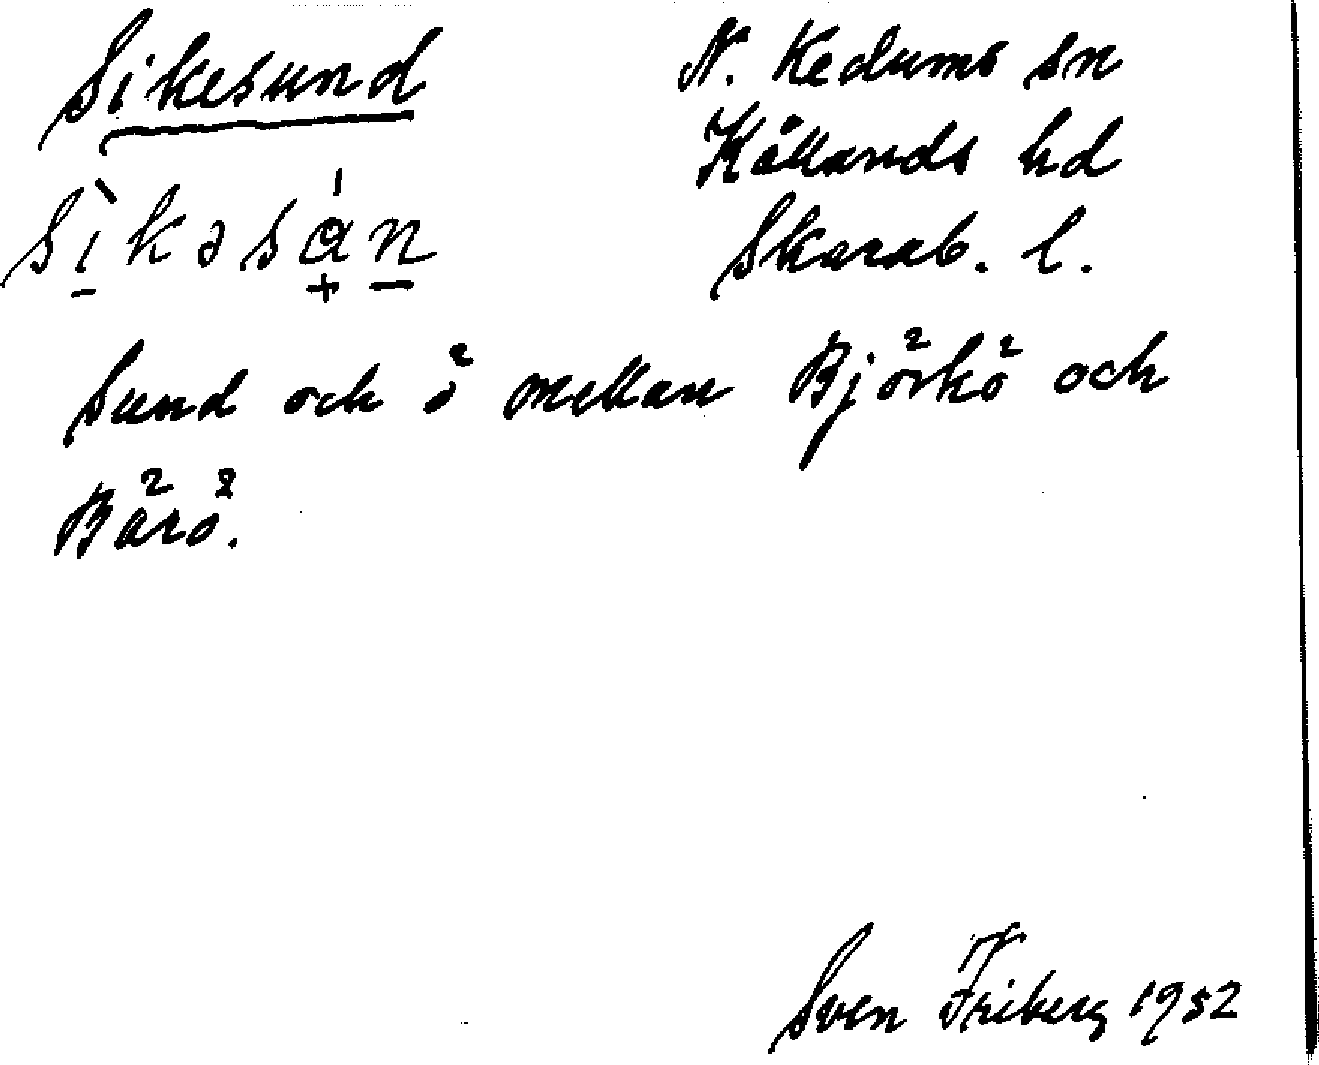 Sikesund
N. Kedums sn
Kållands hd
Skarab. l.
sìkəsán
Sund och ö mellan Björkö och
Bärö.
Sven Friberg 1952